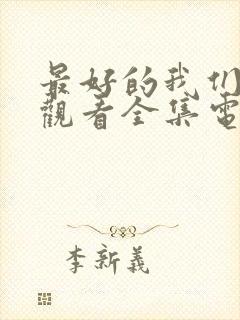 最好的我们
觀看全集電
李新義